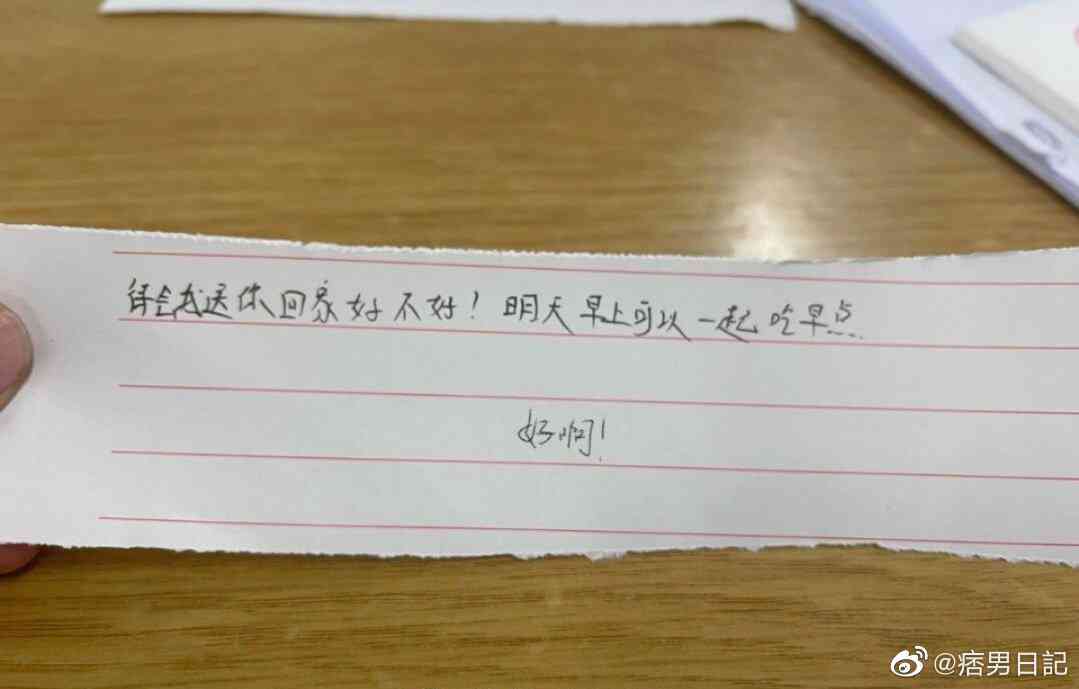 待会我送你回家好不好！明天早上可以一起吃早点
好啊！
@痞男日記